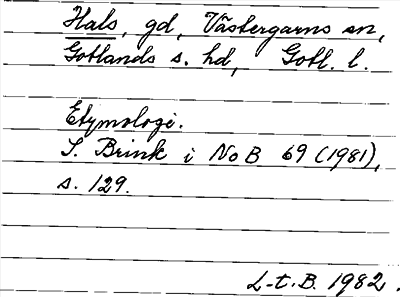 Hals, gd, Västergarns sn,
Gotlands s. hd, Gotl. l.
Etymologi.
S. Brink i NoB 69 (1981),
s. 129.
L-t.B. 1982.